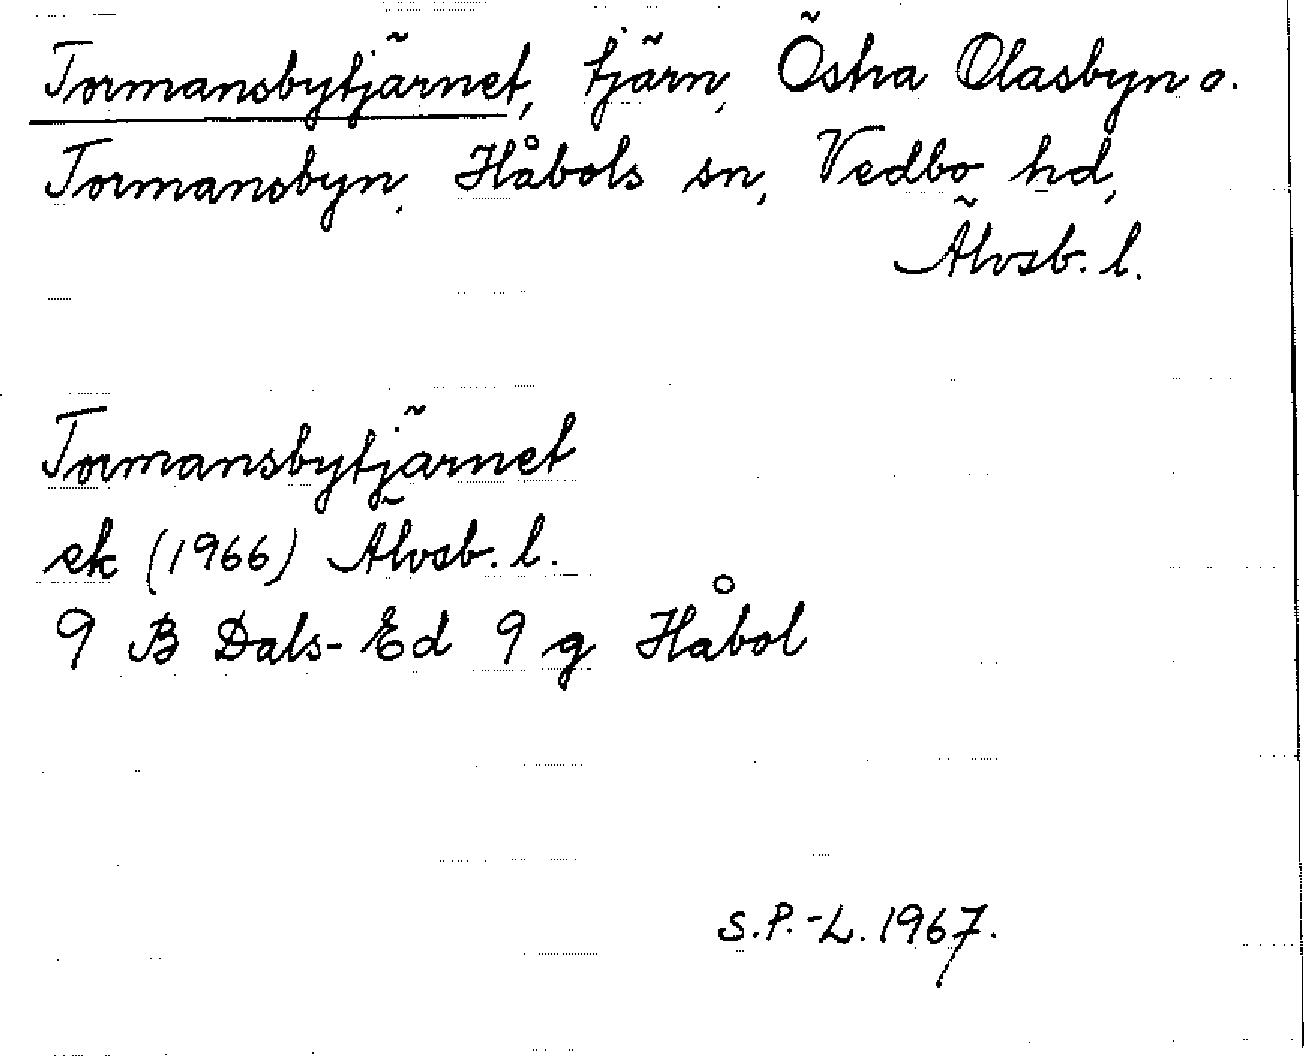 Tormansbytjärnet, tjärn, Östra Olasbyn o.
Tormansbyn, Håbols sn, Vedbo hd,
Älvsb. l.
Tormansbytjärnet
ek (1966) Älvsb. l.
9 B Dals-Ed 9 g Håbol
S.P.-L. 1967.